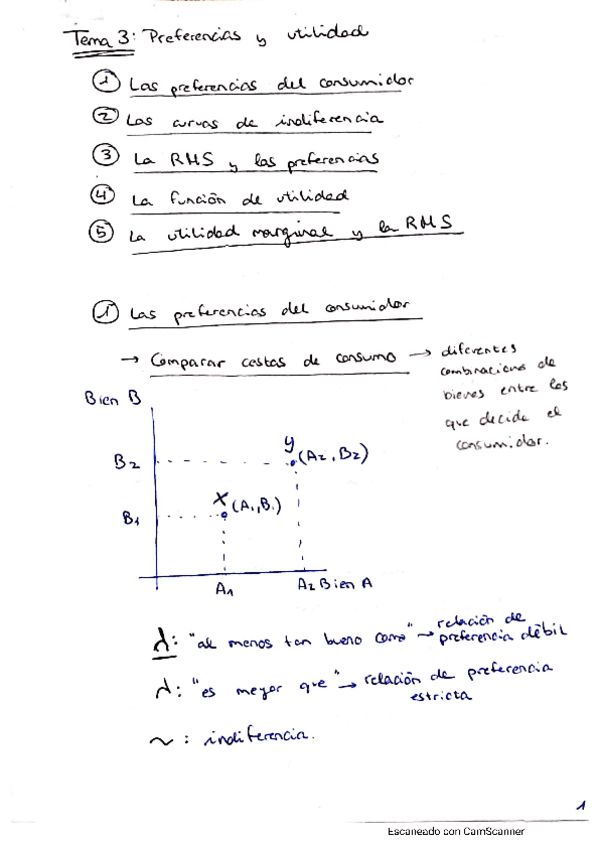 Tema 3: Preferencias y utilidad
① Las preferencias del consumidor
② Las curvas de indiferencia
③ La RMS y las preferencias
④ La función de utilidad
⑤ La utilidad marginal y la RMS
① Las preferencias del consumidor
→ Comparar cestas de consumo → diferentes
combinaciones de
bienes entre las
que decide el
consumidor.
Bien B
B2
y (A2, B2)
B1
x (A1, B1)
A1
A2 Bien A
≿: "al menos tan bueno como" → relación de
preferencia débil
≻: "es mejor que" → relación de preferencia
estricta
~ : indiferencia.
1
Escaneado con CamScanner